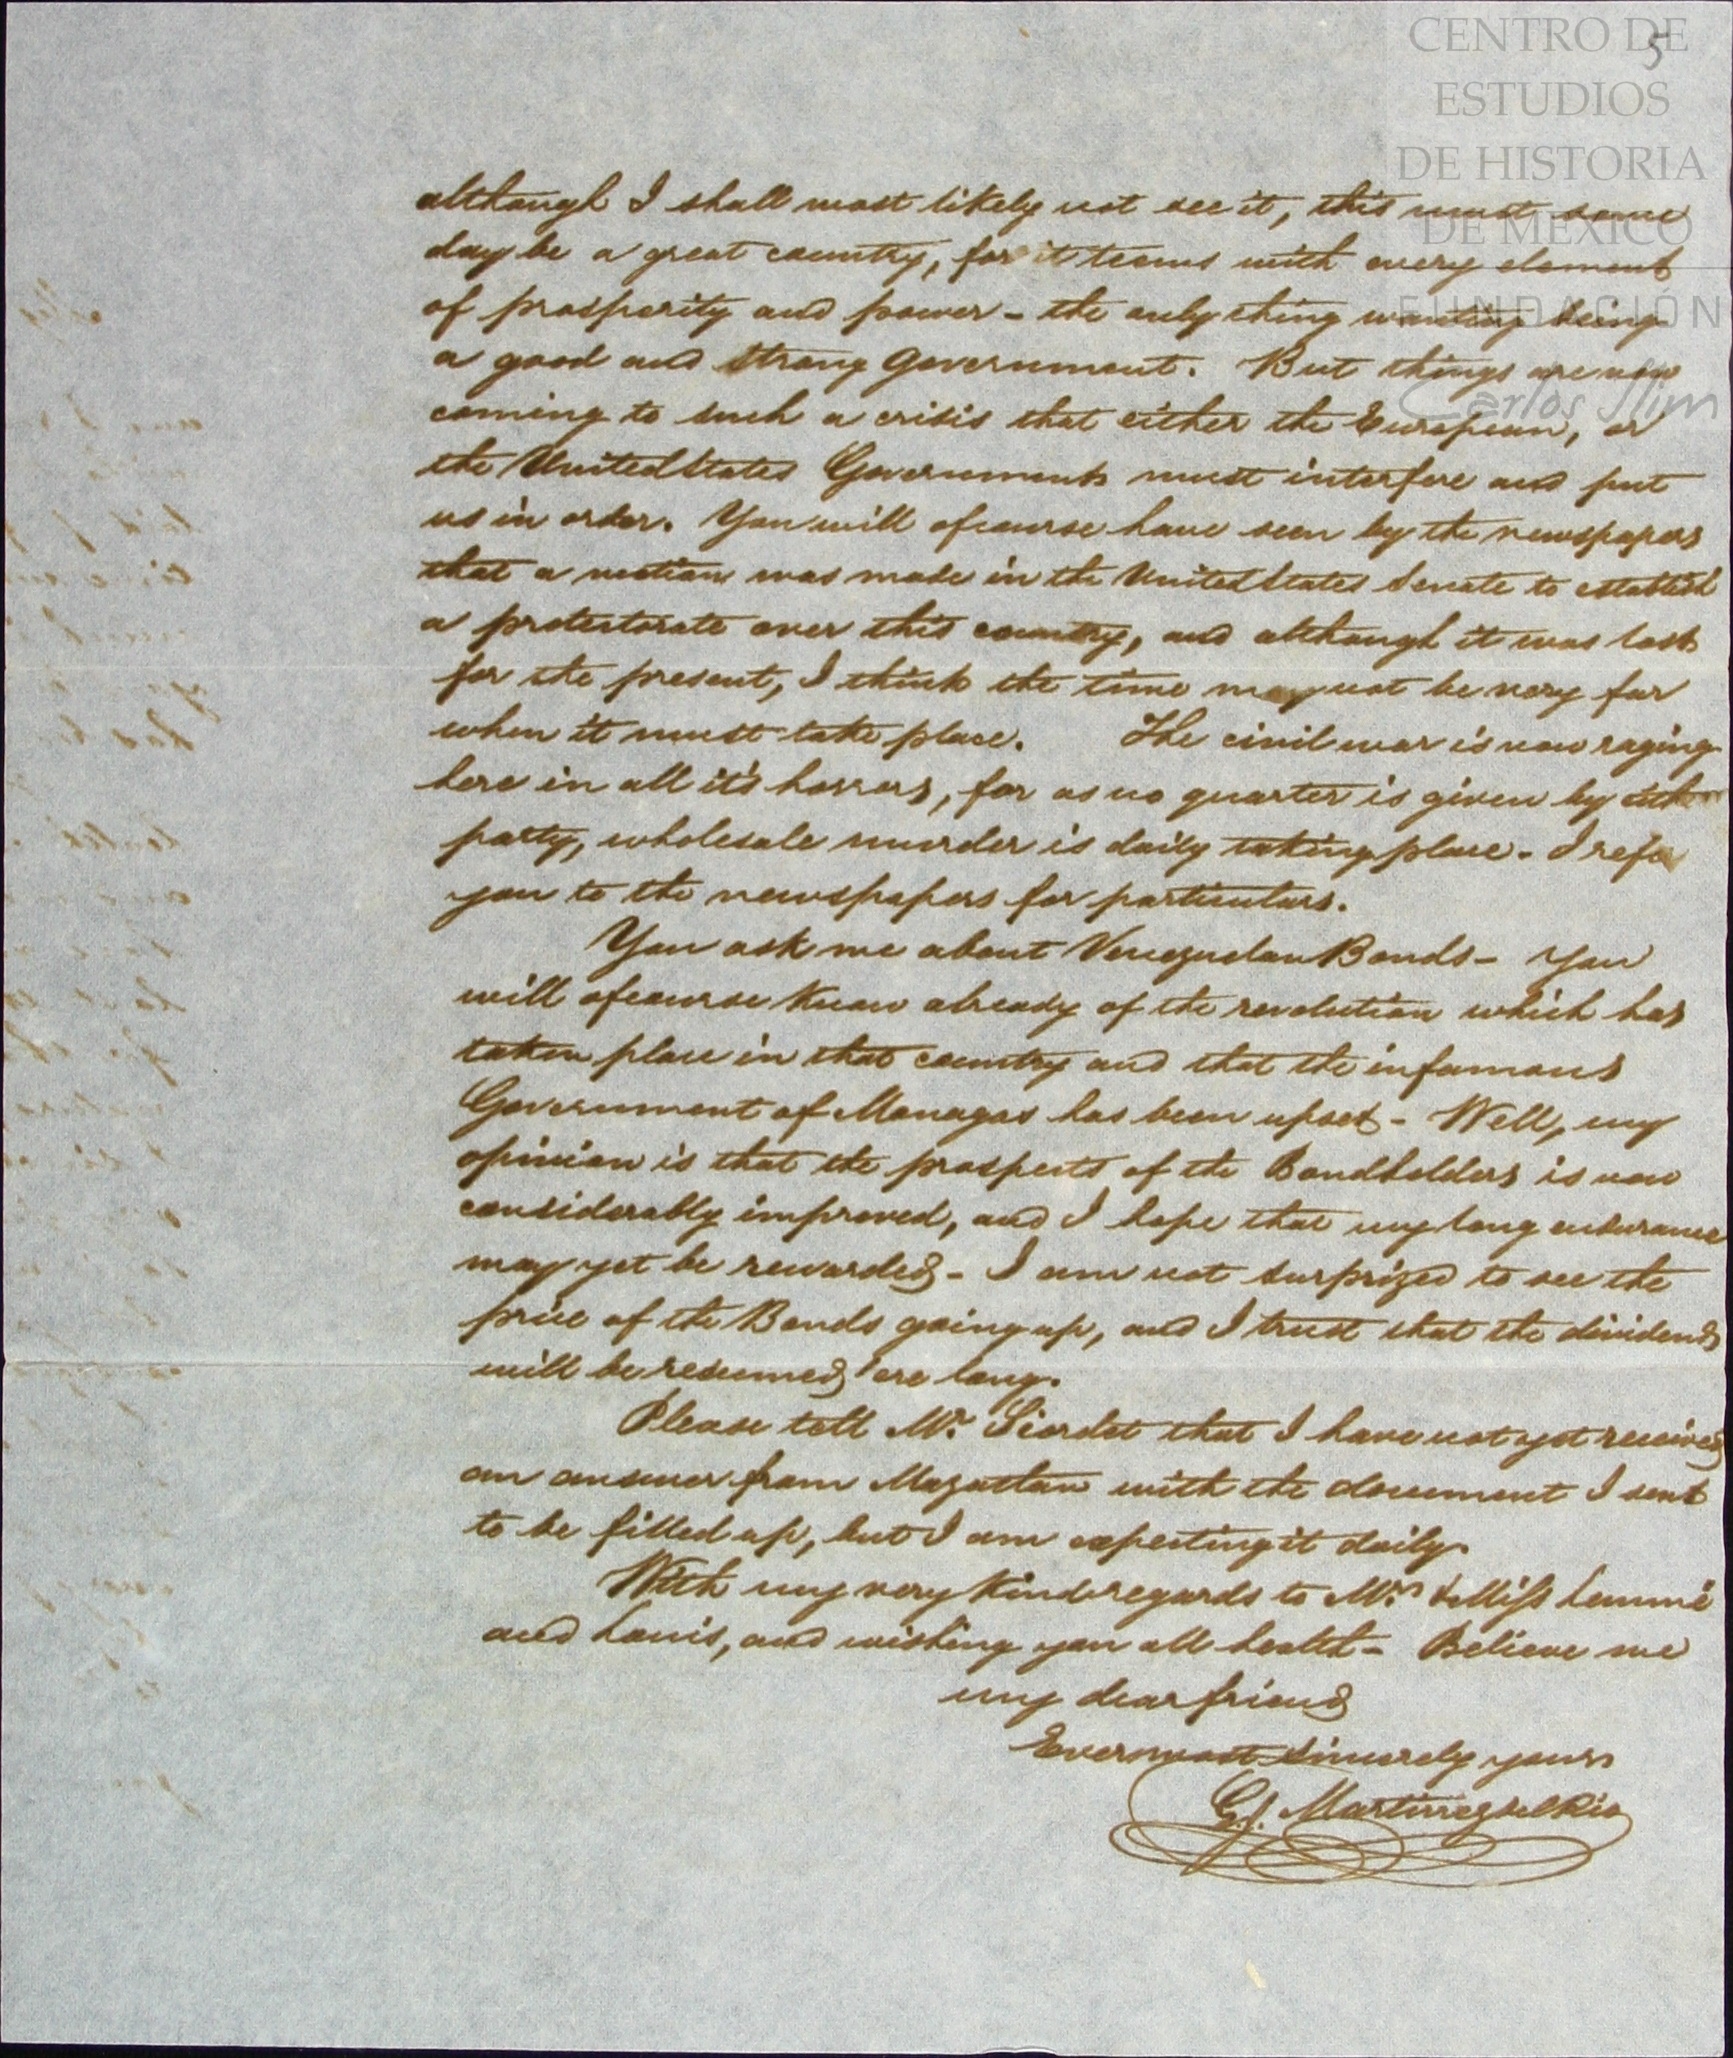 5
CENTRO DE
ESTUDIOS
DE HISTORIA
DE MÉXICO
FUNDACIÓN
Carlos Slim
although I shall most likely not see it, this must some
day be a great country, for it teems with every element
of prosperity and power - the only thing wanting being
a good and strong Government. But things are now
coming to such a crisis that either the European, or
the United States Governments must interfere and put
us in order. You will ofcourse have seen by the newspapers
that a motion was made in the United States Senate to establish
a protectorate over this country, and although it was lost
for the present, I think the time may not be very far
when it must take place. The civil war is now raging
here in all it's horrors, for as no quarter is given by either
party, wholesale murder is daily taking place - I refer
you to the newspapers for particulars.
You ask me about Venezuelan Bonds - You
will ofcourse know already of the revolution which has
taken place in that country and that the infamous
Government of Monagas has been upset - Well, my
opinion is that the prospects of the Bondholders is now
considerably improved, and I hope that my long endurance
may yet be rewarded - I am not surprized to see the
price of the Bonds going up, and I trust that the dividends
will be resumed ere long.
Please tell Mr. Siordet that I have not yet received
an answer from Mazatlan with the document I sent
to be filled up, but I am expecting it daily.
With my very kind regards to Mrs. & Miss Lemmé
and Louis, and wishing you all health - Believe me
my dear friend
Ever most sincerely yours
G. J. Martinez del Rio